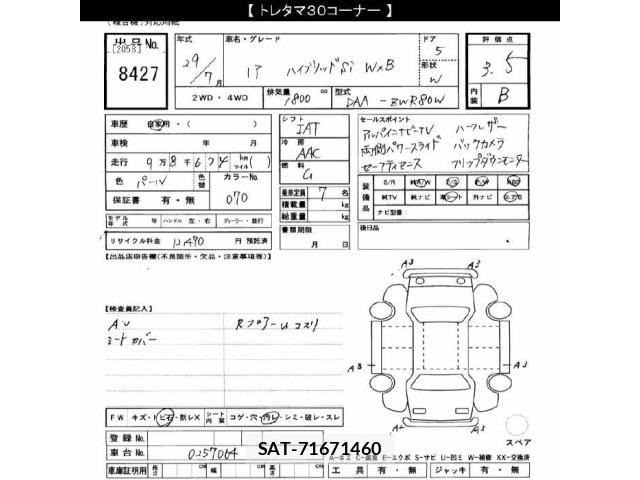 【 トレタマ30コーナー 】
出品No. [2058] 8427
年式 29/7月
車名・グレード 17 ハイブリッドSi W×B
ドア 5
形状 W
評価点 3.5
内装 B
2WD・4WD
排気量 1800 cc
型式 DAA-ZWR80W
車歴 自家用・( )
車検 年 月
走行 9万8千6 km マイル( )
色 パール
色替
カラーNo. 070
保証書 有・無
モデル年式 年 ハンドル 左・右 ディーラー・並行
リサイクル料金 12470 円 預託済
シフト IAT
冷房 AAC
燃料 G
乗車定員 7 名
積載量 kg
総重量 kg
書類期限 月 日
セールスポイント
アルパインナビTV ハーフレザー
両側パワースライド バックカメラ
セーフティセンス フリップダウンモニター
装備品 S/R 純A/W P/S P/W
純TV 純ナビ 革シート 外ナビ エアB
ナビ型番
後日品
【出品店申告欄(不良箇所・欠品・注意事項等)】
【検査員記入】
AU RフロアーUコスリ
シートカバー
A3 A3
A3 A3
A2 A3
FW キズ・トビ石・割レX シート内装 コゲ・穴・汚レ・シミ・破レ・スレ
登録No.
車台No. 0257064
スペア
SAT-71671460
A-キズ C-腐食 E-エクボ S-サビ U-凹ミ W-補修 XX-交換済
車庫証明用 長さ cm 幅 cm 高さ cm 工具 有・無 ジャッキ 有・無